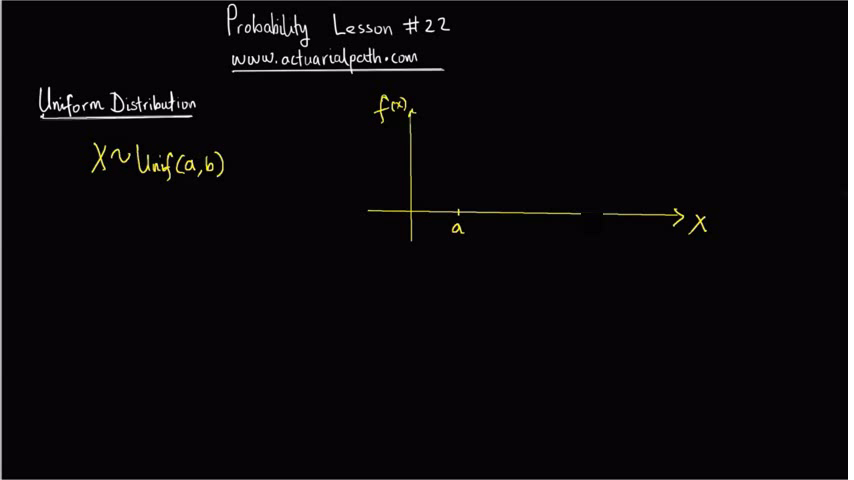 Probability Lesson #22
www.actuarialpath.com
Uniform Distribution
f(x)
X~Unif(a,b)
a
X